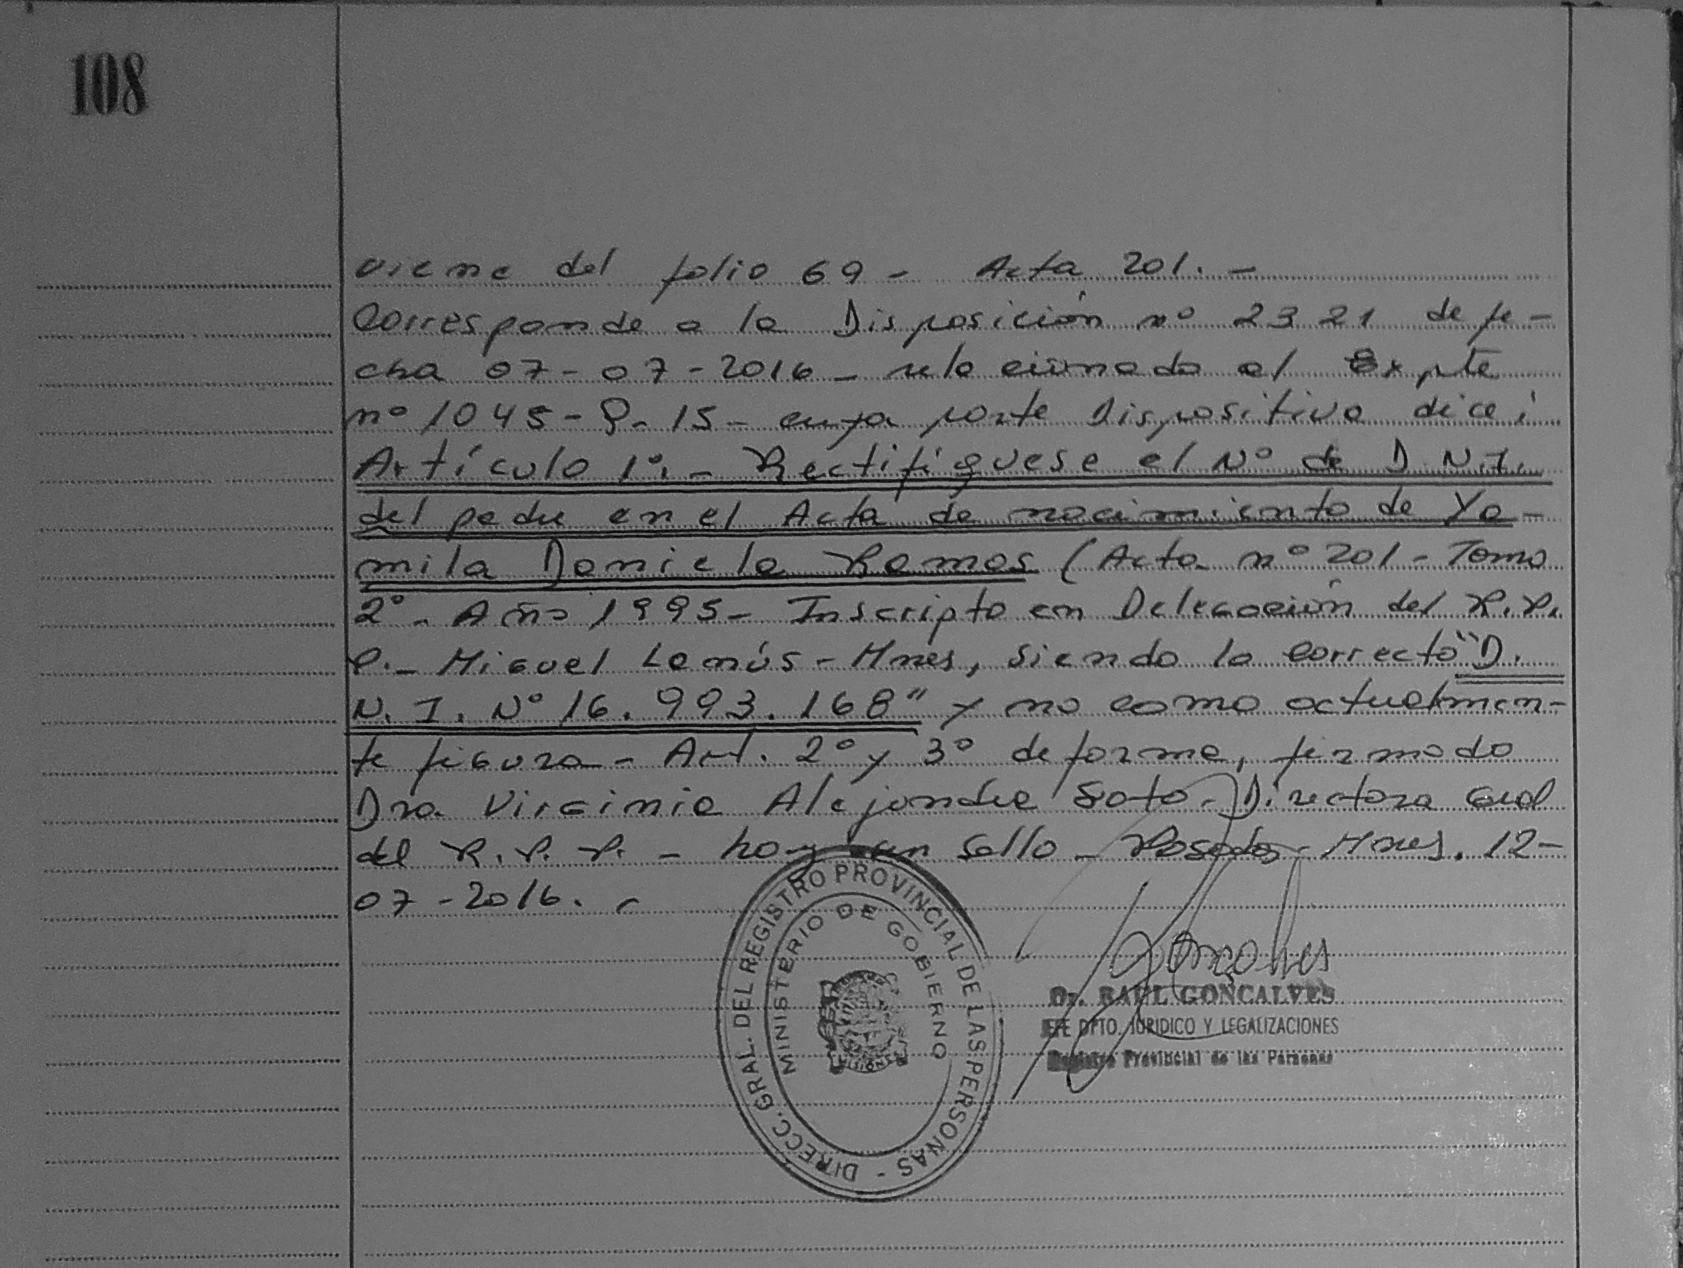 108
viene del folio 69 - Acta 201. -
Corresponde a la Disposición nº 2321 de fe-
cha 07-07-2016 - relacionado al Expte
nº 1045-P-15 - cuya parte dispositiva dice:
Artículo 1º. - Rectifíquese el Nº de D.N.I.
del padre en el Acta de nacimiento de Ya-
mila Daniela Ramos (Acta nº 201 - Tomo
2º - Año 1995 - Inscripto en Delegación del R.P.
P. - Miguel Lanús - Mnes, siendo lo correcto "D.
N. I. Nº 16.993.168" y no como actualmen-
te figura - Art. 2º y 3º de forma, firmado
Dra. Virginia Alejandra Soto - Directora Gral
del R. P. P. - hay un Sello - Posadas - Mnes. 12-
07-2016. -
DIRECC. GRAL. DEL REGISTRO PROVINCIAL DE LAS PERSONAS -
MINISTERIO DE GOBIERNO
MISIONES
Gonçalves
Dr. RAUL GONCALVES
JEFE DPTO. JURIDICO Y LEGALIZACIONES
Registro Provincial de las Personas